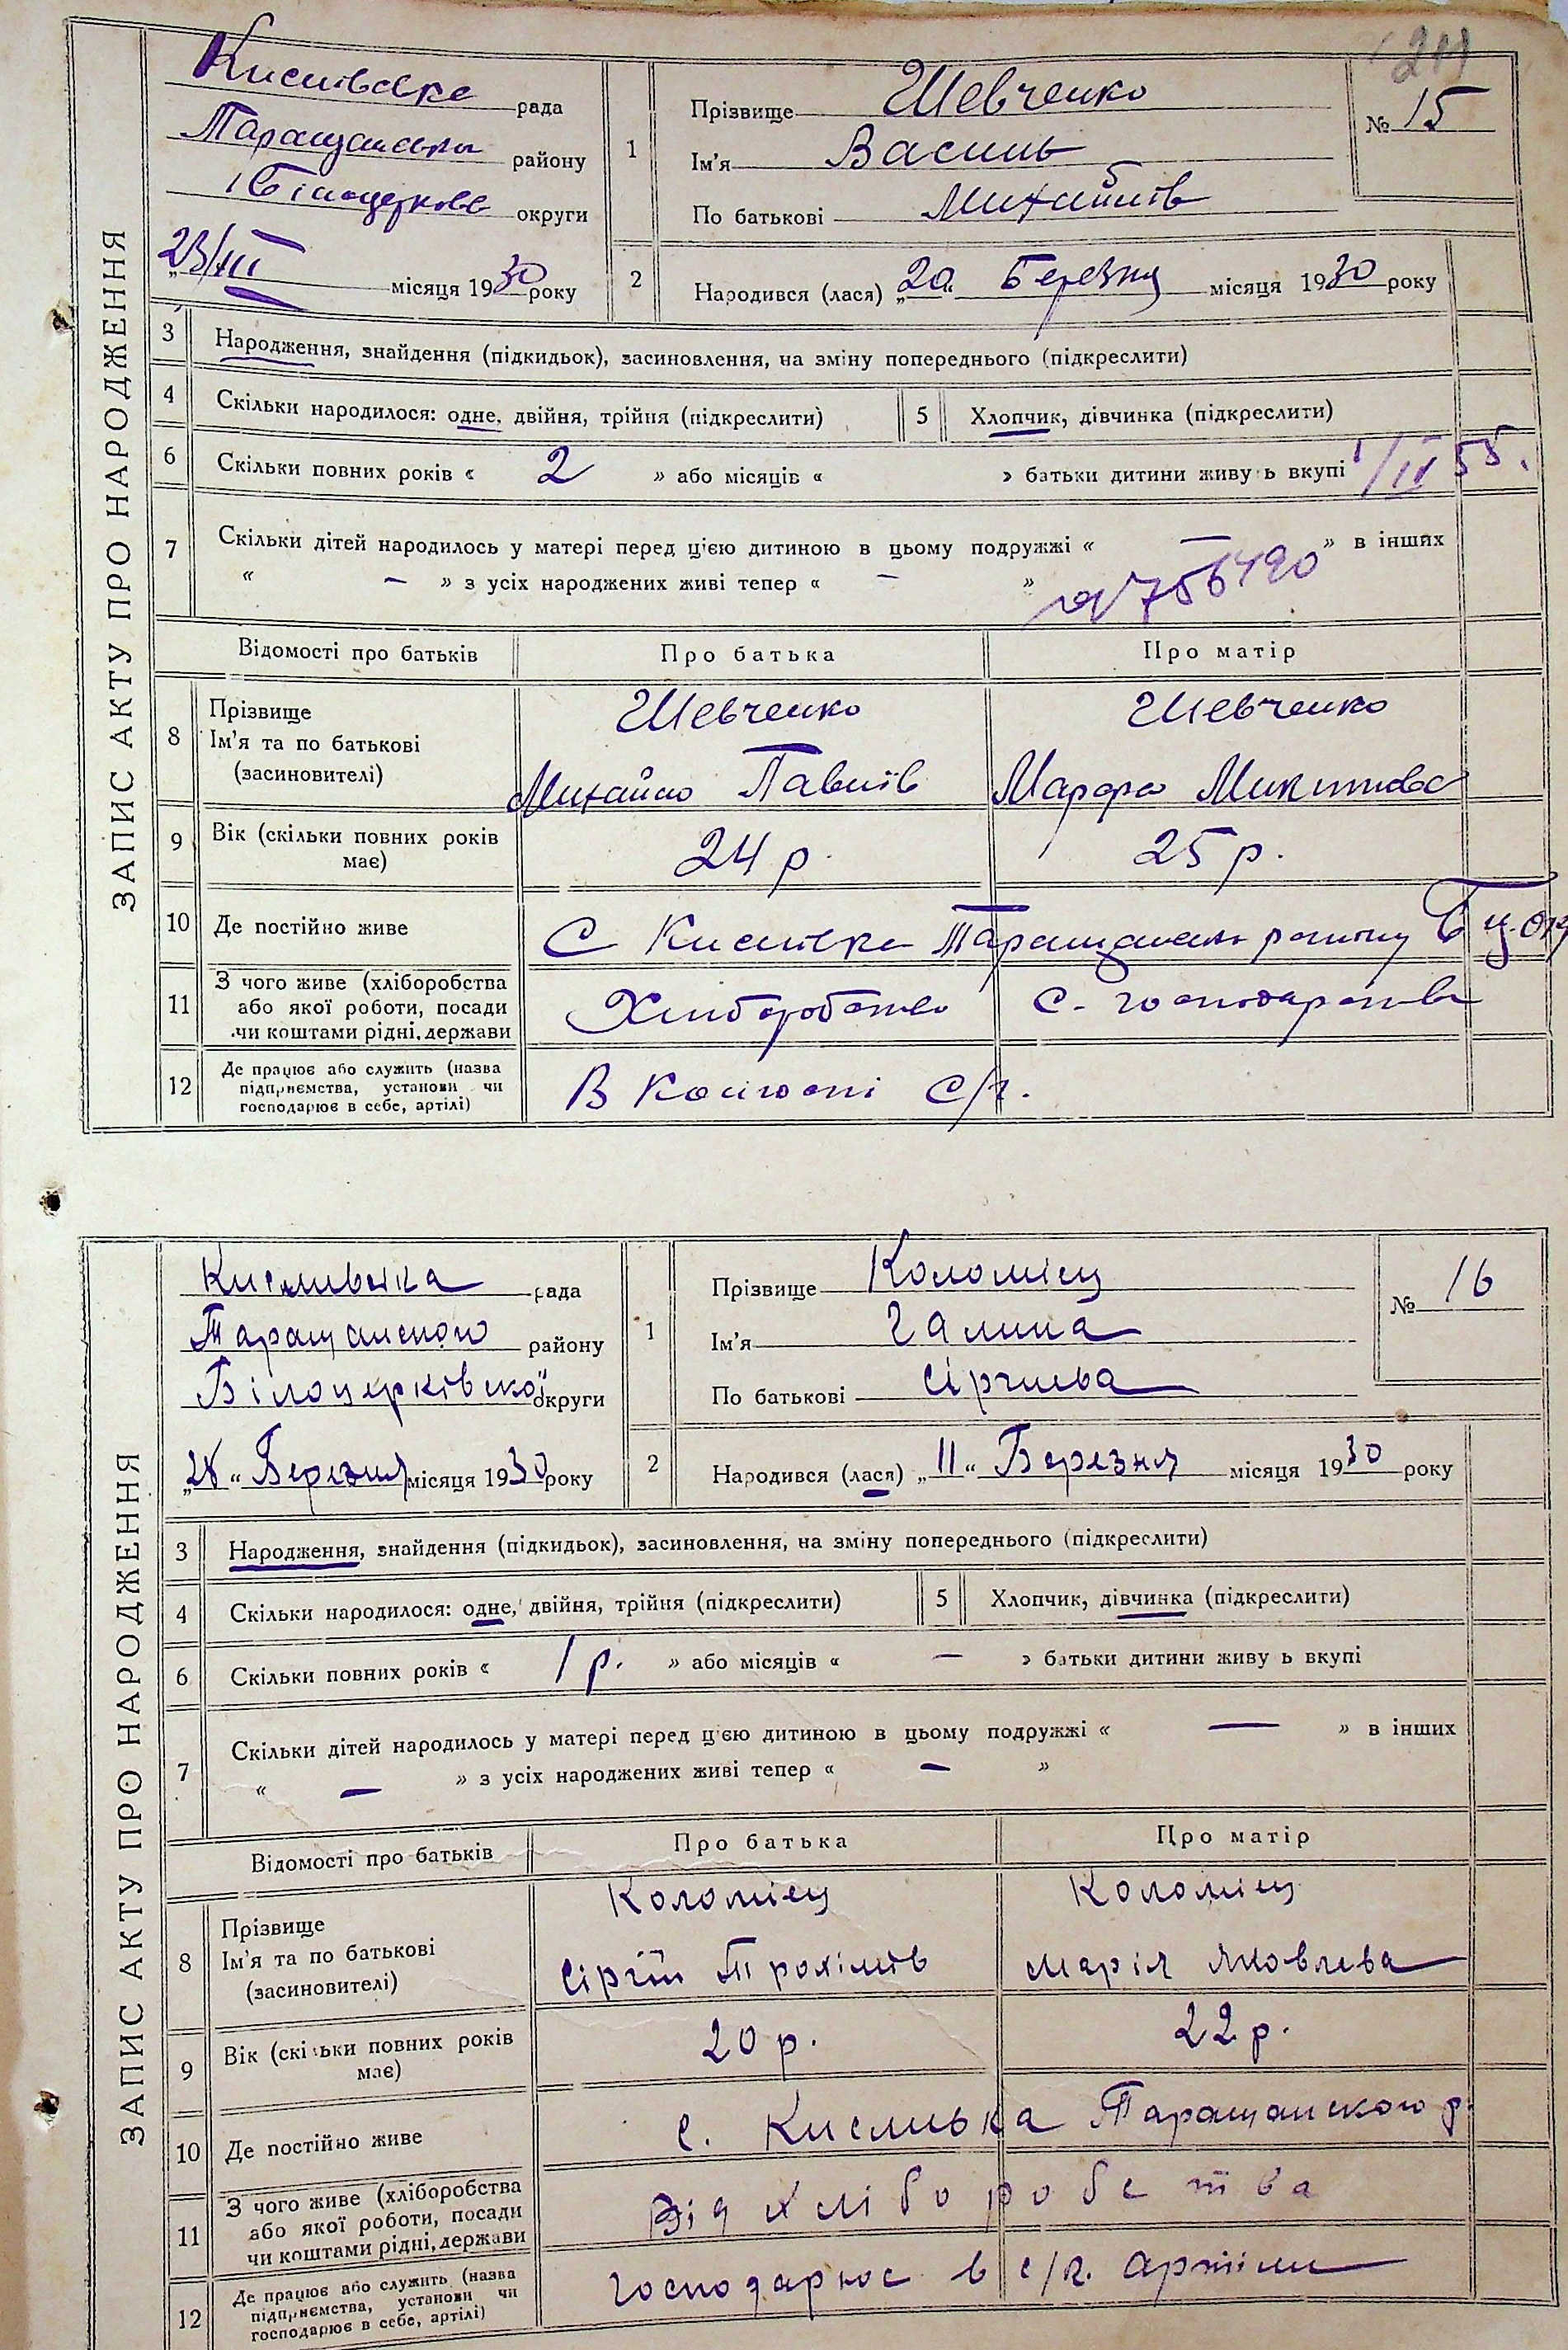 ЗАПИС АКТУ ПРО НАРОДЖЕННЯ
рада
Таращанськ району
округи
23/III місяця 1930 року
1
Прізвище Шевченко
Ім'я Василь
По батькові Михайлів
№ 15
2 Народився (лася) „20“ Березня місяця 1930 року
3 Народження, знайдення (підкидьок), засиновлення, на зміну попереднього (підкреслити)
4 Скільки народилося: одне, двійня, трійня (підкреслити) 5 Хлопчик, дівчинка (підкреслити)
6 Скільки повних років « 2 » або місяців « » батьки дитини живуть вкупі
7 Скільки дітей народилось у матері перед цією дитиною в цьому подружжі « — » в інших
« — » з усіх народжених живі тепер « — »
Відомості про батьків Про батька Про матір
8 Прізвище
Ім'я та по батькові
(засиновителі)
Шевченко Шевченко
Михайло Павлів Марфа Микитова
9 Вік (скільки повних років
має)
24 р. 25 р.
10 Де постійно живе С Кислівка
11 З чого живе (хліборобства
або якої роботи, посади
чи коштами рідні, держави
Хліборобство с. господарства
12 Де працює або служить (назва
підприємства, установи чи
господарює в себе, артілі)
В с/г.
ЗАПИС АКТУ ПРО НАРОДЖЕННЯ
Кисливська рада
Таращанського району
Білоцерківської округи
„28“ Березня місяця 1930 року
1
Прізвище Коломієц
Ім'я Галина
По батькові Сіргиева
№ 16
2 Народився (лася) „11“ Березня місяця 1930 року
3 Народження, знайдення (підкидьок), засиновлення, на зміну попереднього (підкреслити)
4 Скільки народилося: одне, двійня, трійня (підкреслити) 5 Хлопчик, дівчинка (підкреслити)
6 Скільки повних років « 1 р. » або місяців « — » батьки дитини живу ь вкупі
7 Скільки дітей народилось у матері перед цією дитиною в цьому подружжі « — » в інших
« — » з усіх народжених живі тепер « — »
Відомості про батьків Про батька Про матір
8 Прізвище
Ім'я та по батькові
(засиновителі)
Коломієц Коломієц
Сіргій Трохімів Марія Яковлева
9 Вік (скільки повних років
має)
20 р. 22 р.
10 Де постійно живе с. Кисливка Таращанского р.
11 З чого живе (хліборобства
або якої роботи, посади
чи коштами рідні, держави
Від хліборобства
12 Де працює або служить (назва
підприємства, установи чи
господарює в себе, артілі)
господарює в с/г. артіли